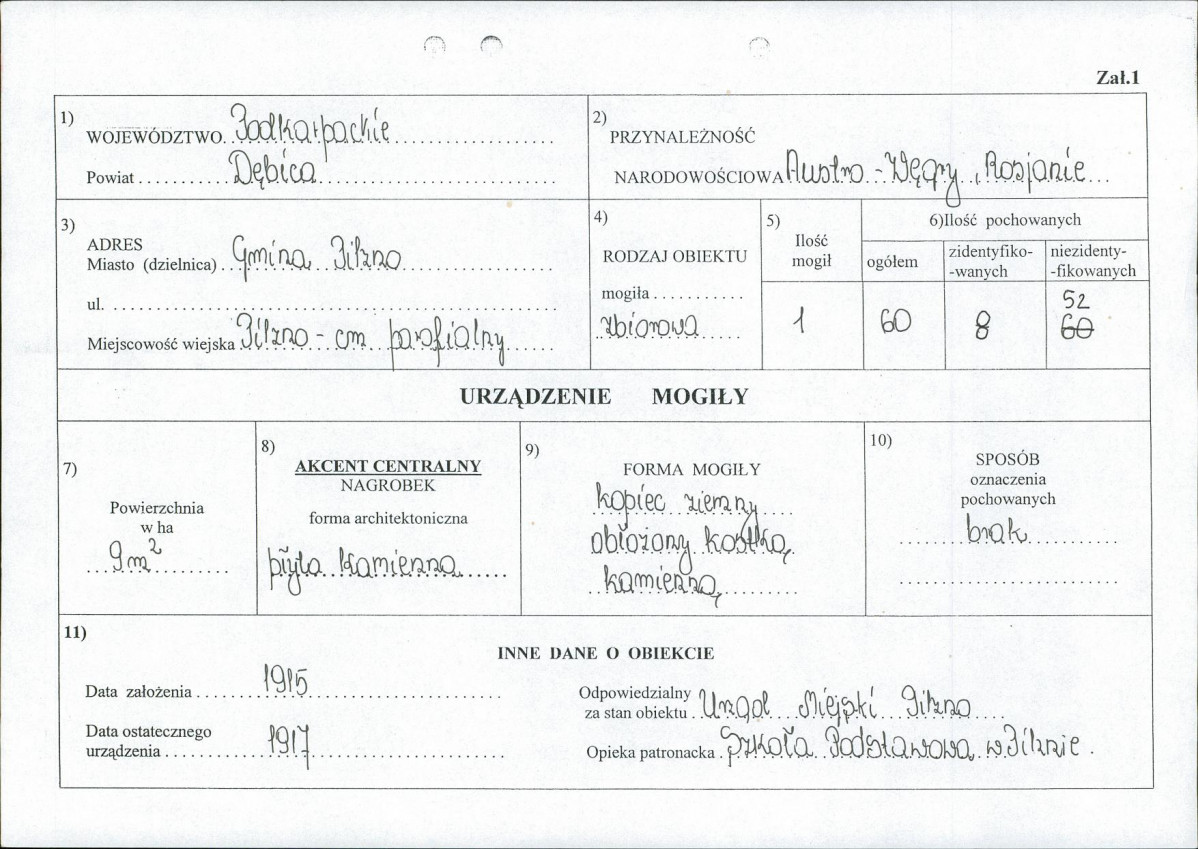 Zał.1
1)
WOJEWÓDZTWO Podkarpackie
Powiat Dębica
2)
PRZYNALEŻNOŚĆ
NARODOWOŚCIOWA Austro-Węgry, Rosjanie
3)
ADRES
Miasto (dzielnica) Gmina Pilzno
ul.
Miejscowość wiejska Pilzno - cm parafialny
4)
RODZAJ OBIEKTU
mogiła
zbiorowa
5)
Ilość
mogił
1
6)Ilość pochowanych
ogółem
60
zidentyfiko-
-wanych
8
niezidenty-
-fikowanych
52
60
URZĄDZENIE MOGIŁY
7)
Powierzchnia
w ha
9m²
8)
AKCENT CENTRALNY
NAGROBEK
forma architektoniczna
płyta kamienna
9)
FORMA MOGIŁY
kopiec ziemny
obłożony kostką
kamienną
10)
SPOSÓB
oznaczenia
pochowanych
brak
11)
INNE DANE O OBIEKCIE
Data założenia 1915
Data ostatecznego
urządzenia 1917
Odpowiedzialny
za stan obiektu Urząd Miejski Pilzno
Opieka patronacka Szkoła Podstawowa w Pilznie.